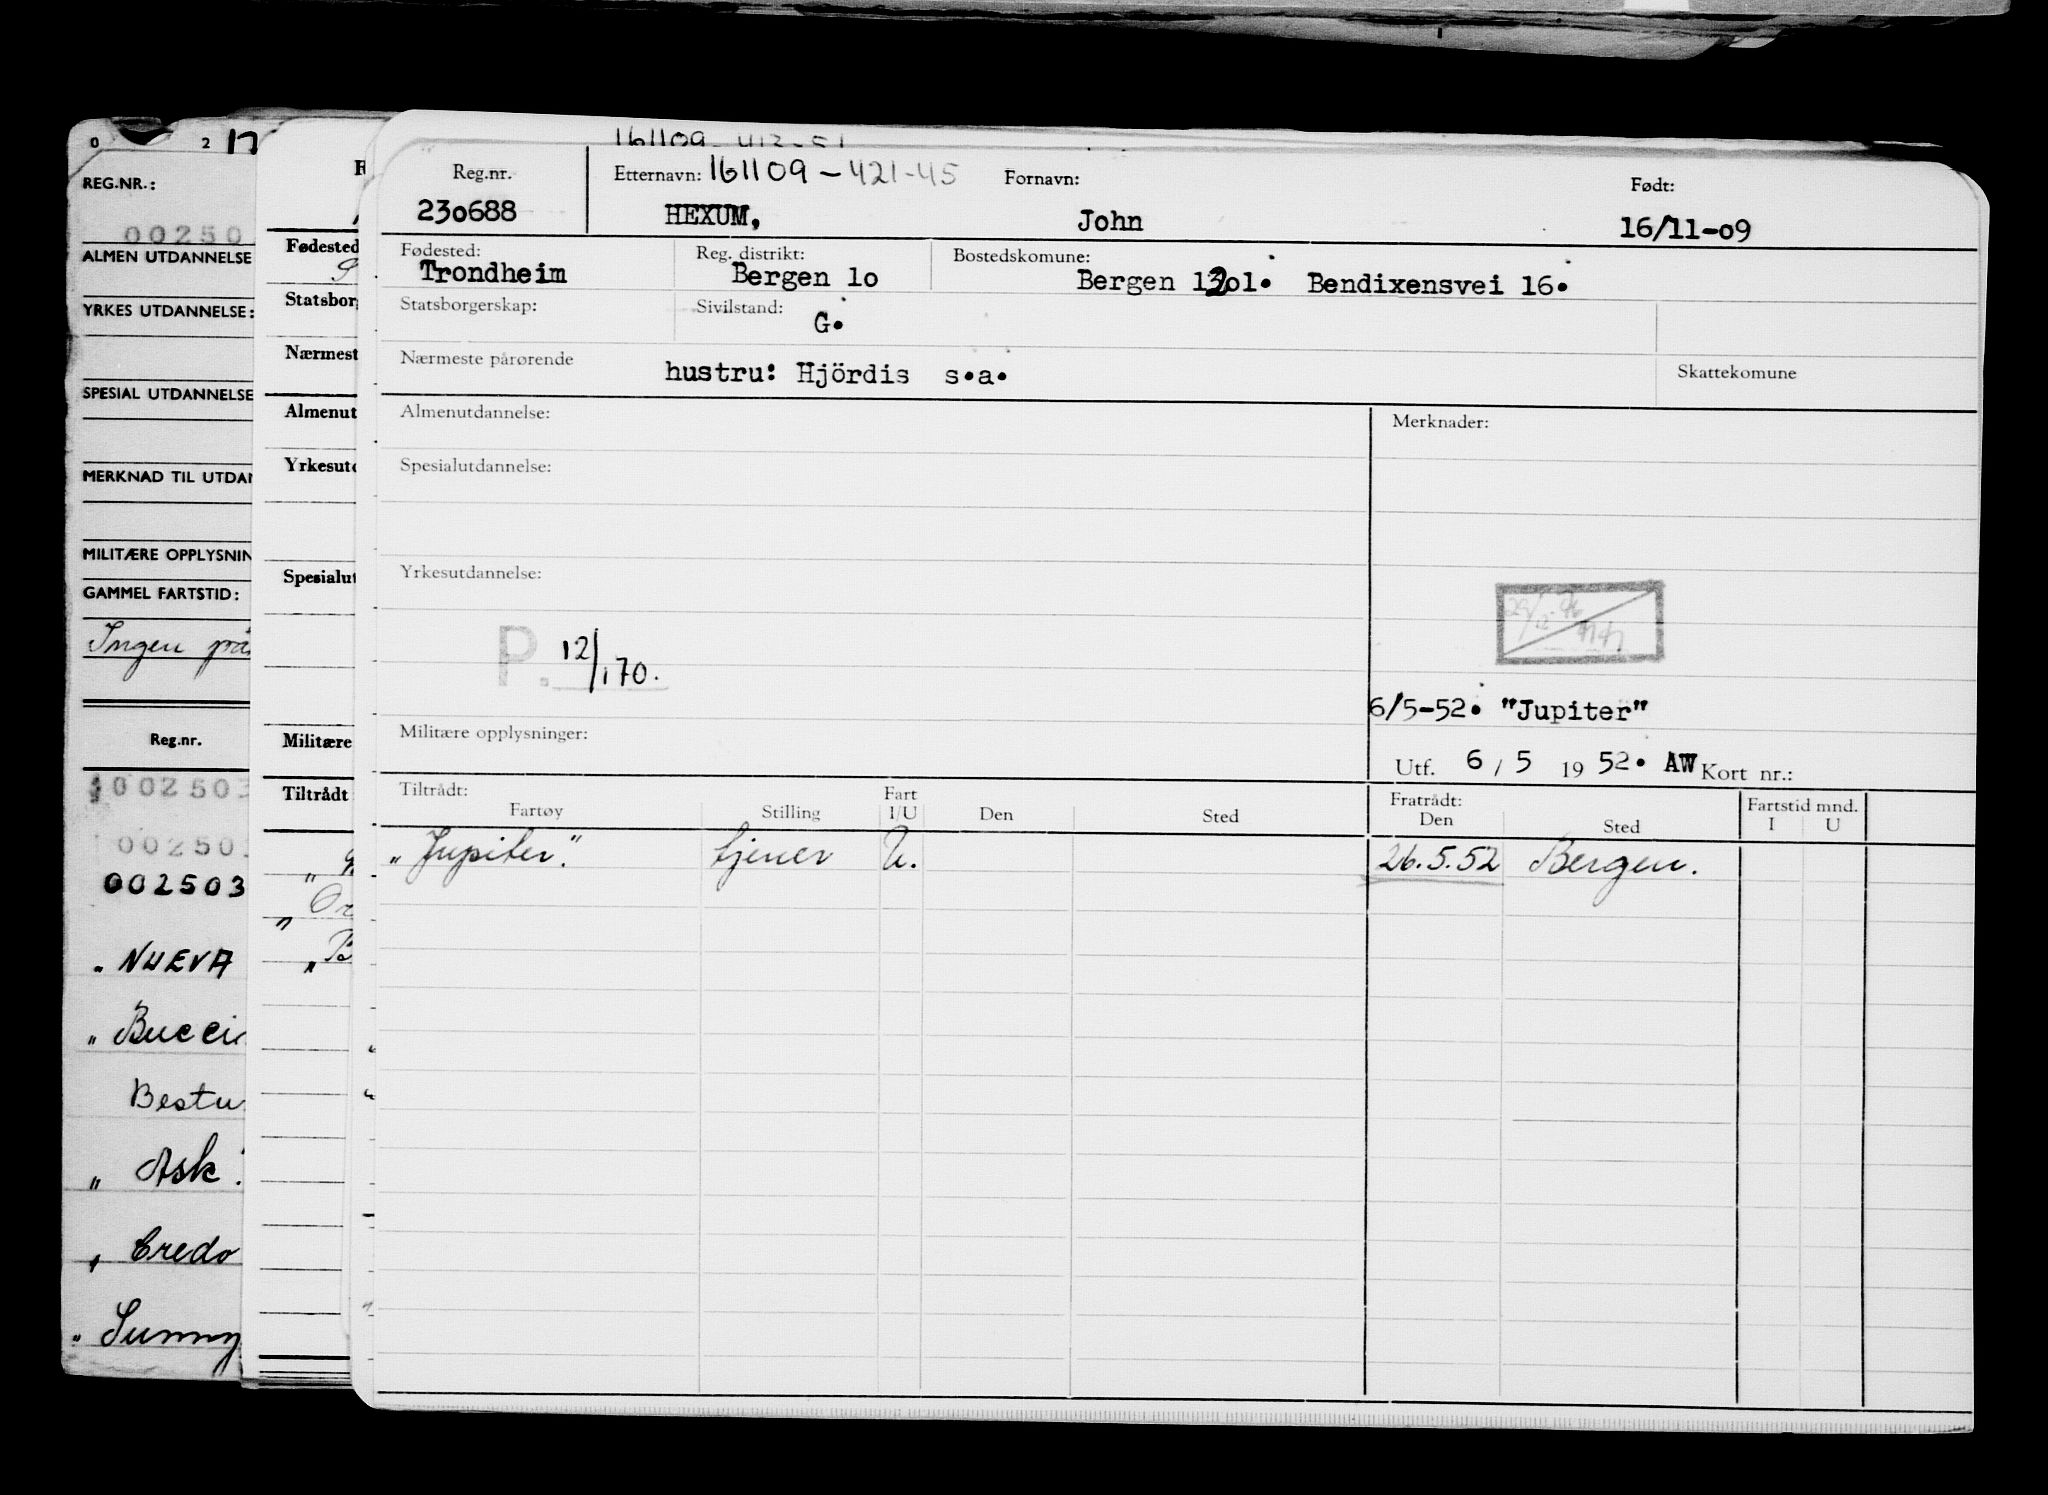 161109 - 421-45
Reg.nr. 230688
Etternavn: 161109 - 421-45 HEXUM,
Fornavn: John
Født: 16/11-09
Fødested: Trondheim
Reg. distrikt: Bergen 1o
Bostedskomune: Bergen 1301. Bendixensvei 16.
Statsborgerskap:
Sivilstand: G.
Nærmeste pårørende hustru: Hjördis s.a.
Skattekomune
Almenutdannelse:
Merknader:
Spesialutdannelse:
Yrkesutdannelse:
P. 12/1 70.
6/5-52. "Jupiter"
Militære opplysninger:
Utf. 6 / 5 19 52. AW Kort nr.:
Tiltrådt: Fartøy Stilling Fart I/U Den Sted
Fratrådt: Den Sted Fartstid mnd. I U
„Jupiter." tjener U. 26.5.52 Bergen.
0 2 17
REG.NR.:
00250
ALMEN UTDANNELSE
YRKES UTDANNELSE:
SPESIAL UTDANNELSE
MERKNAD TIL UTDAN
MILITÆRE OPPLYSNIN
GAMMEL FARTSTID:
Ingen prå
Reg.nr.
002503
00250
002503
„ NUEVA
„ Bucci
Bestu
„ Ask."
„ Credo
„ Sunny
Fødested
Statsborg
Nærmest
Almenut
Yrkesut
Spesialut
Militære
Tiltrådt
„ Or
„ B